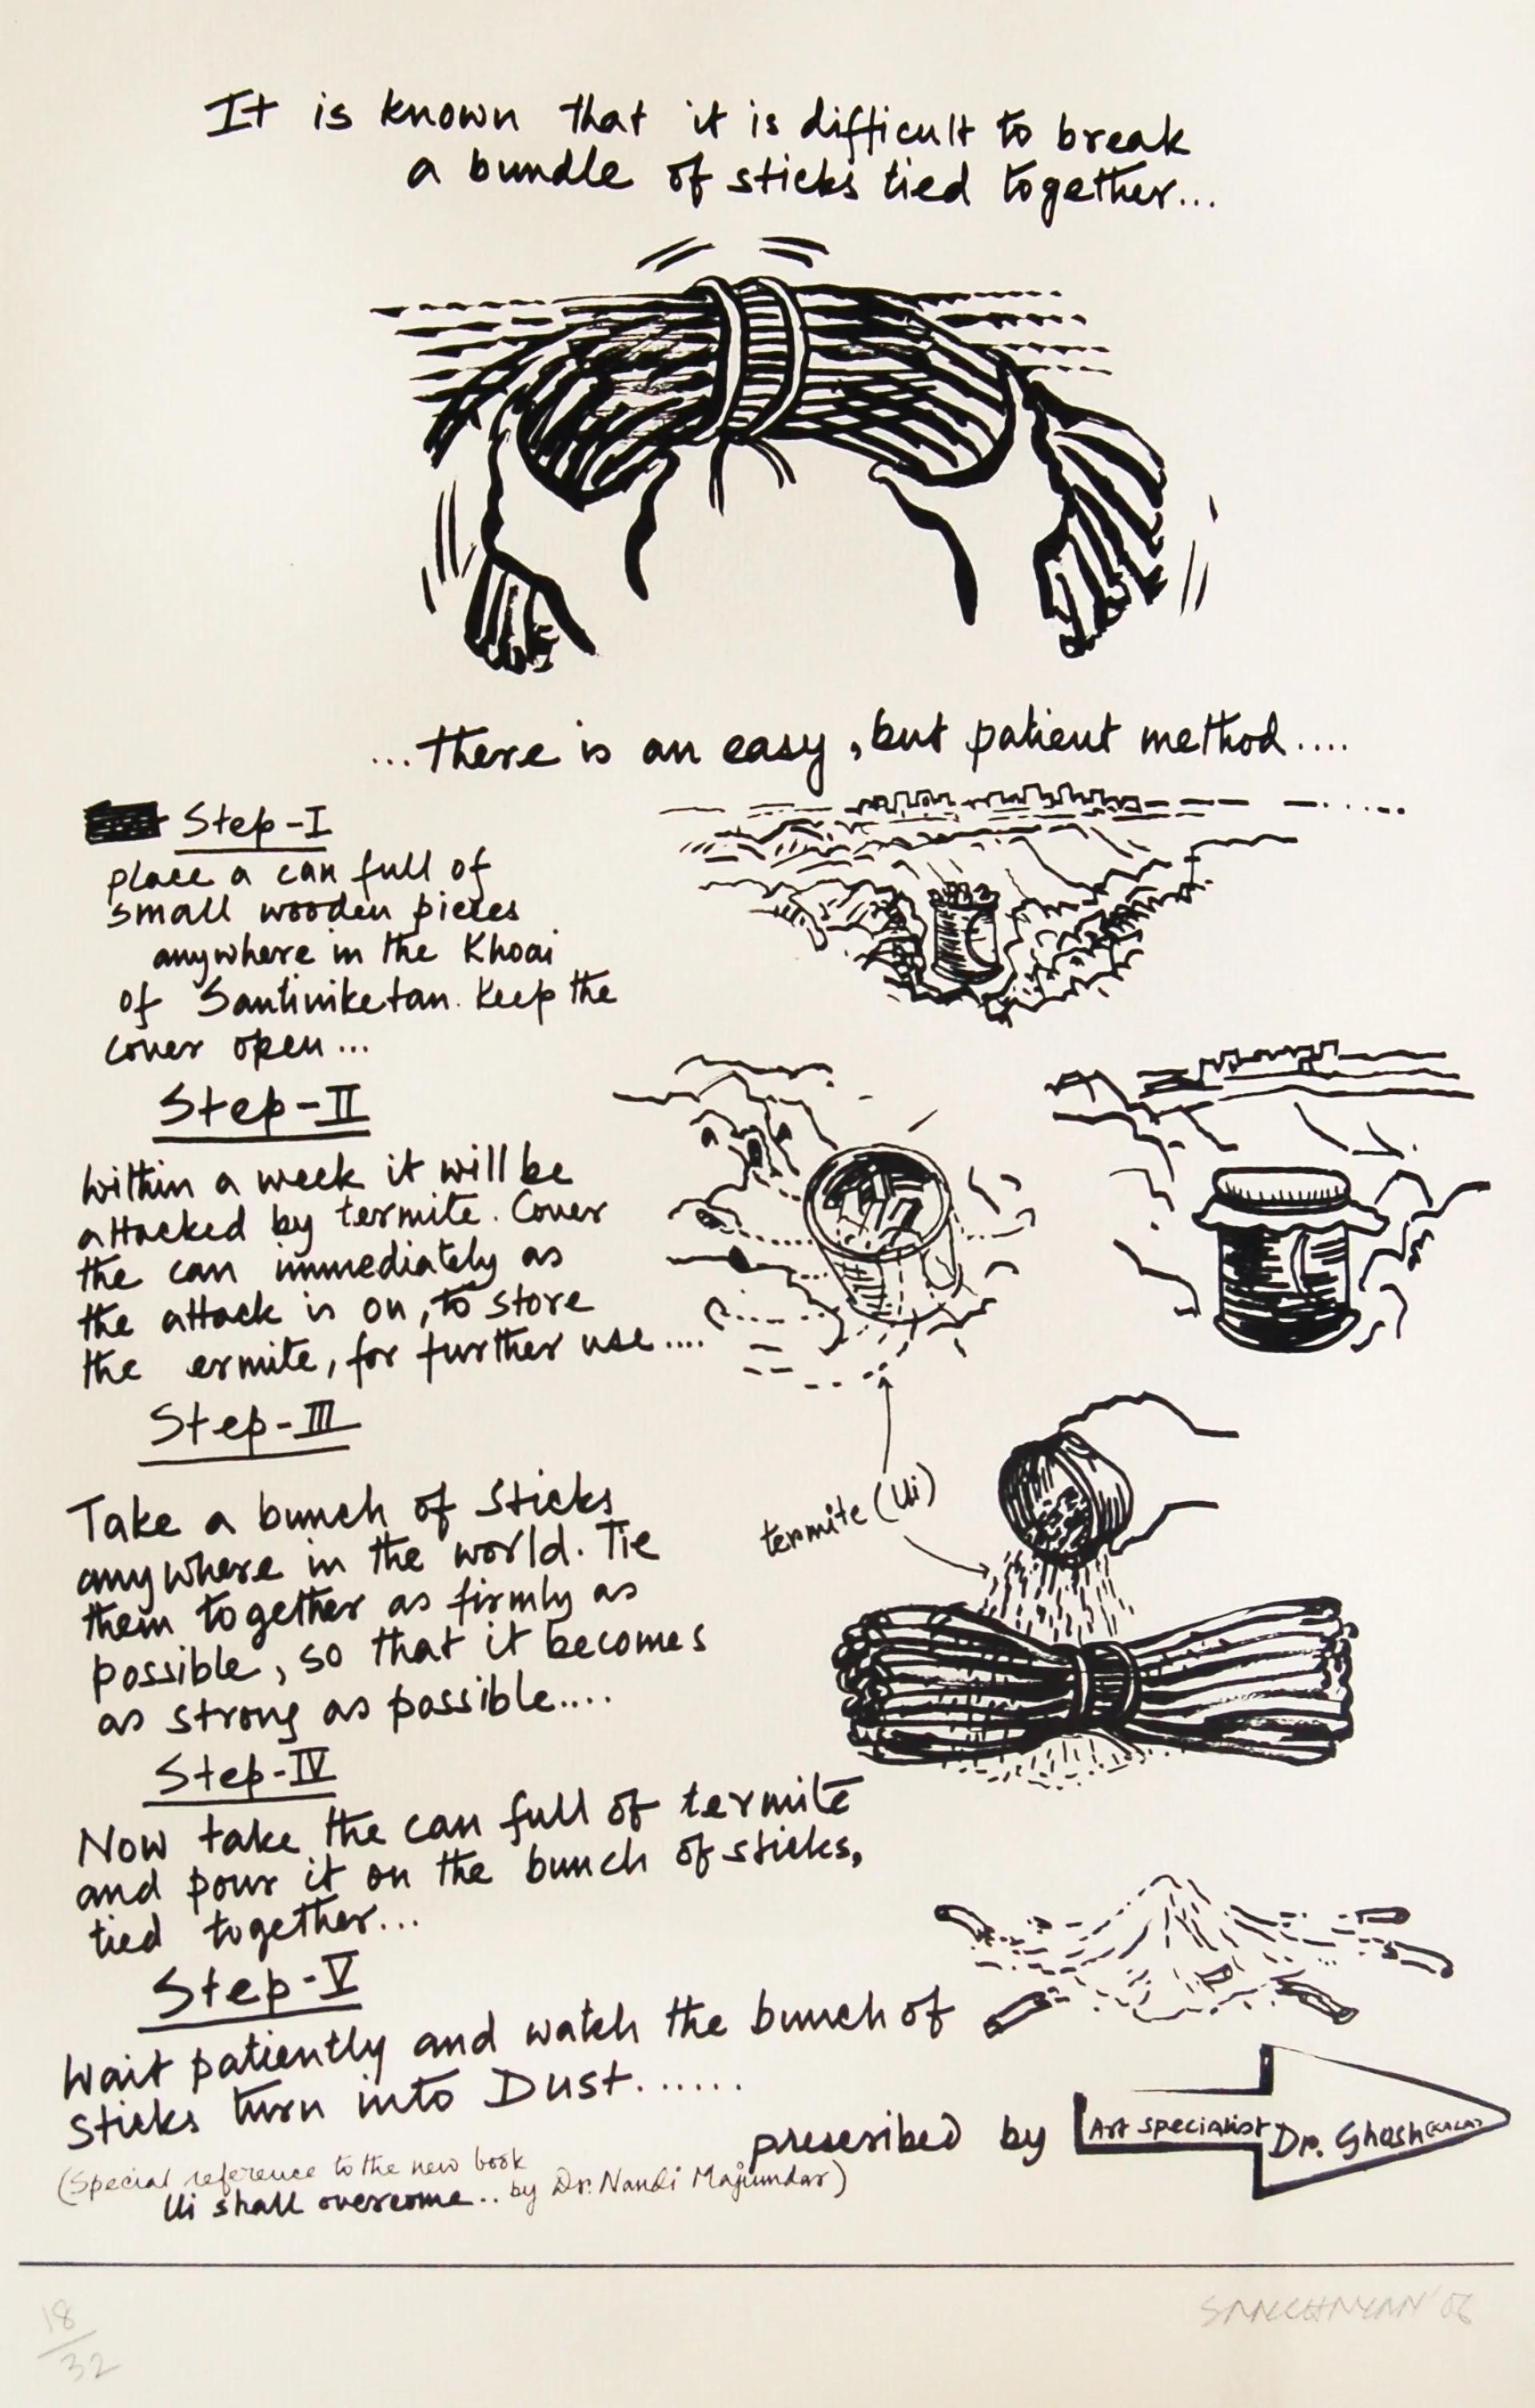 It is known that it is difficult to break
a bundle of sticks tied together...
...there is an easy, but patient method....
Step-I
place a can full of
small wooden pieces
anywhere in the Khoai
of Santiniketan. Keep the
cover open...
Step-II
Within a week it will be
attacked by termite. Cover
the can immediately as
the attack is on, to store
the ermite, for further use....
Step-III
termite (Ui)
Take a bunch of sticks
anywhere in the world. Tie
them together as firmly as
possible, so that it becomes
as strong as possible....
Step-IV
Now take the can full of termite
and pour it on the bunch of sticks,
tied together...
Step-V
Wait patiently and watch the bunch of
sticks turn into Dust......
prescribed by Art specialist Dr. Ghosh
(Special reference to the new book
Ui shall overcome.. by Dr. Nandi Majumdar)
18/32
SANCHAYAN '06